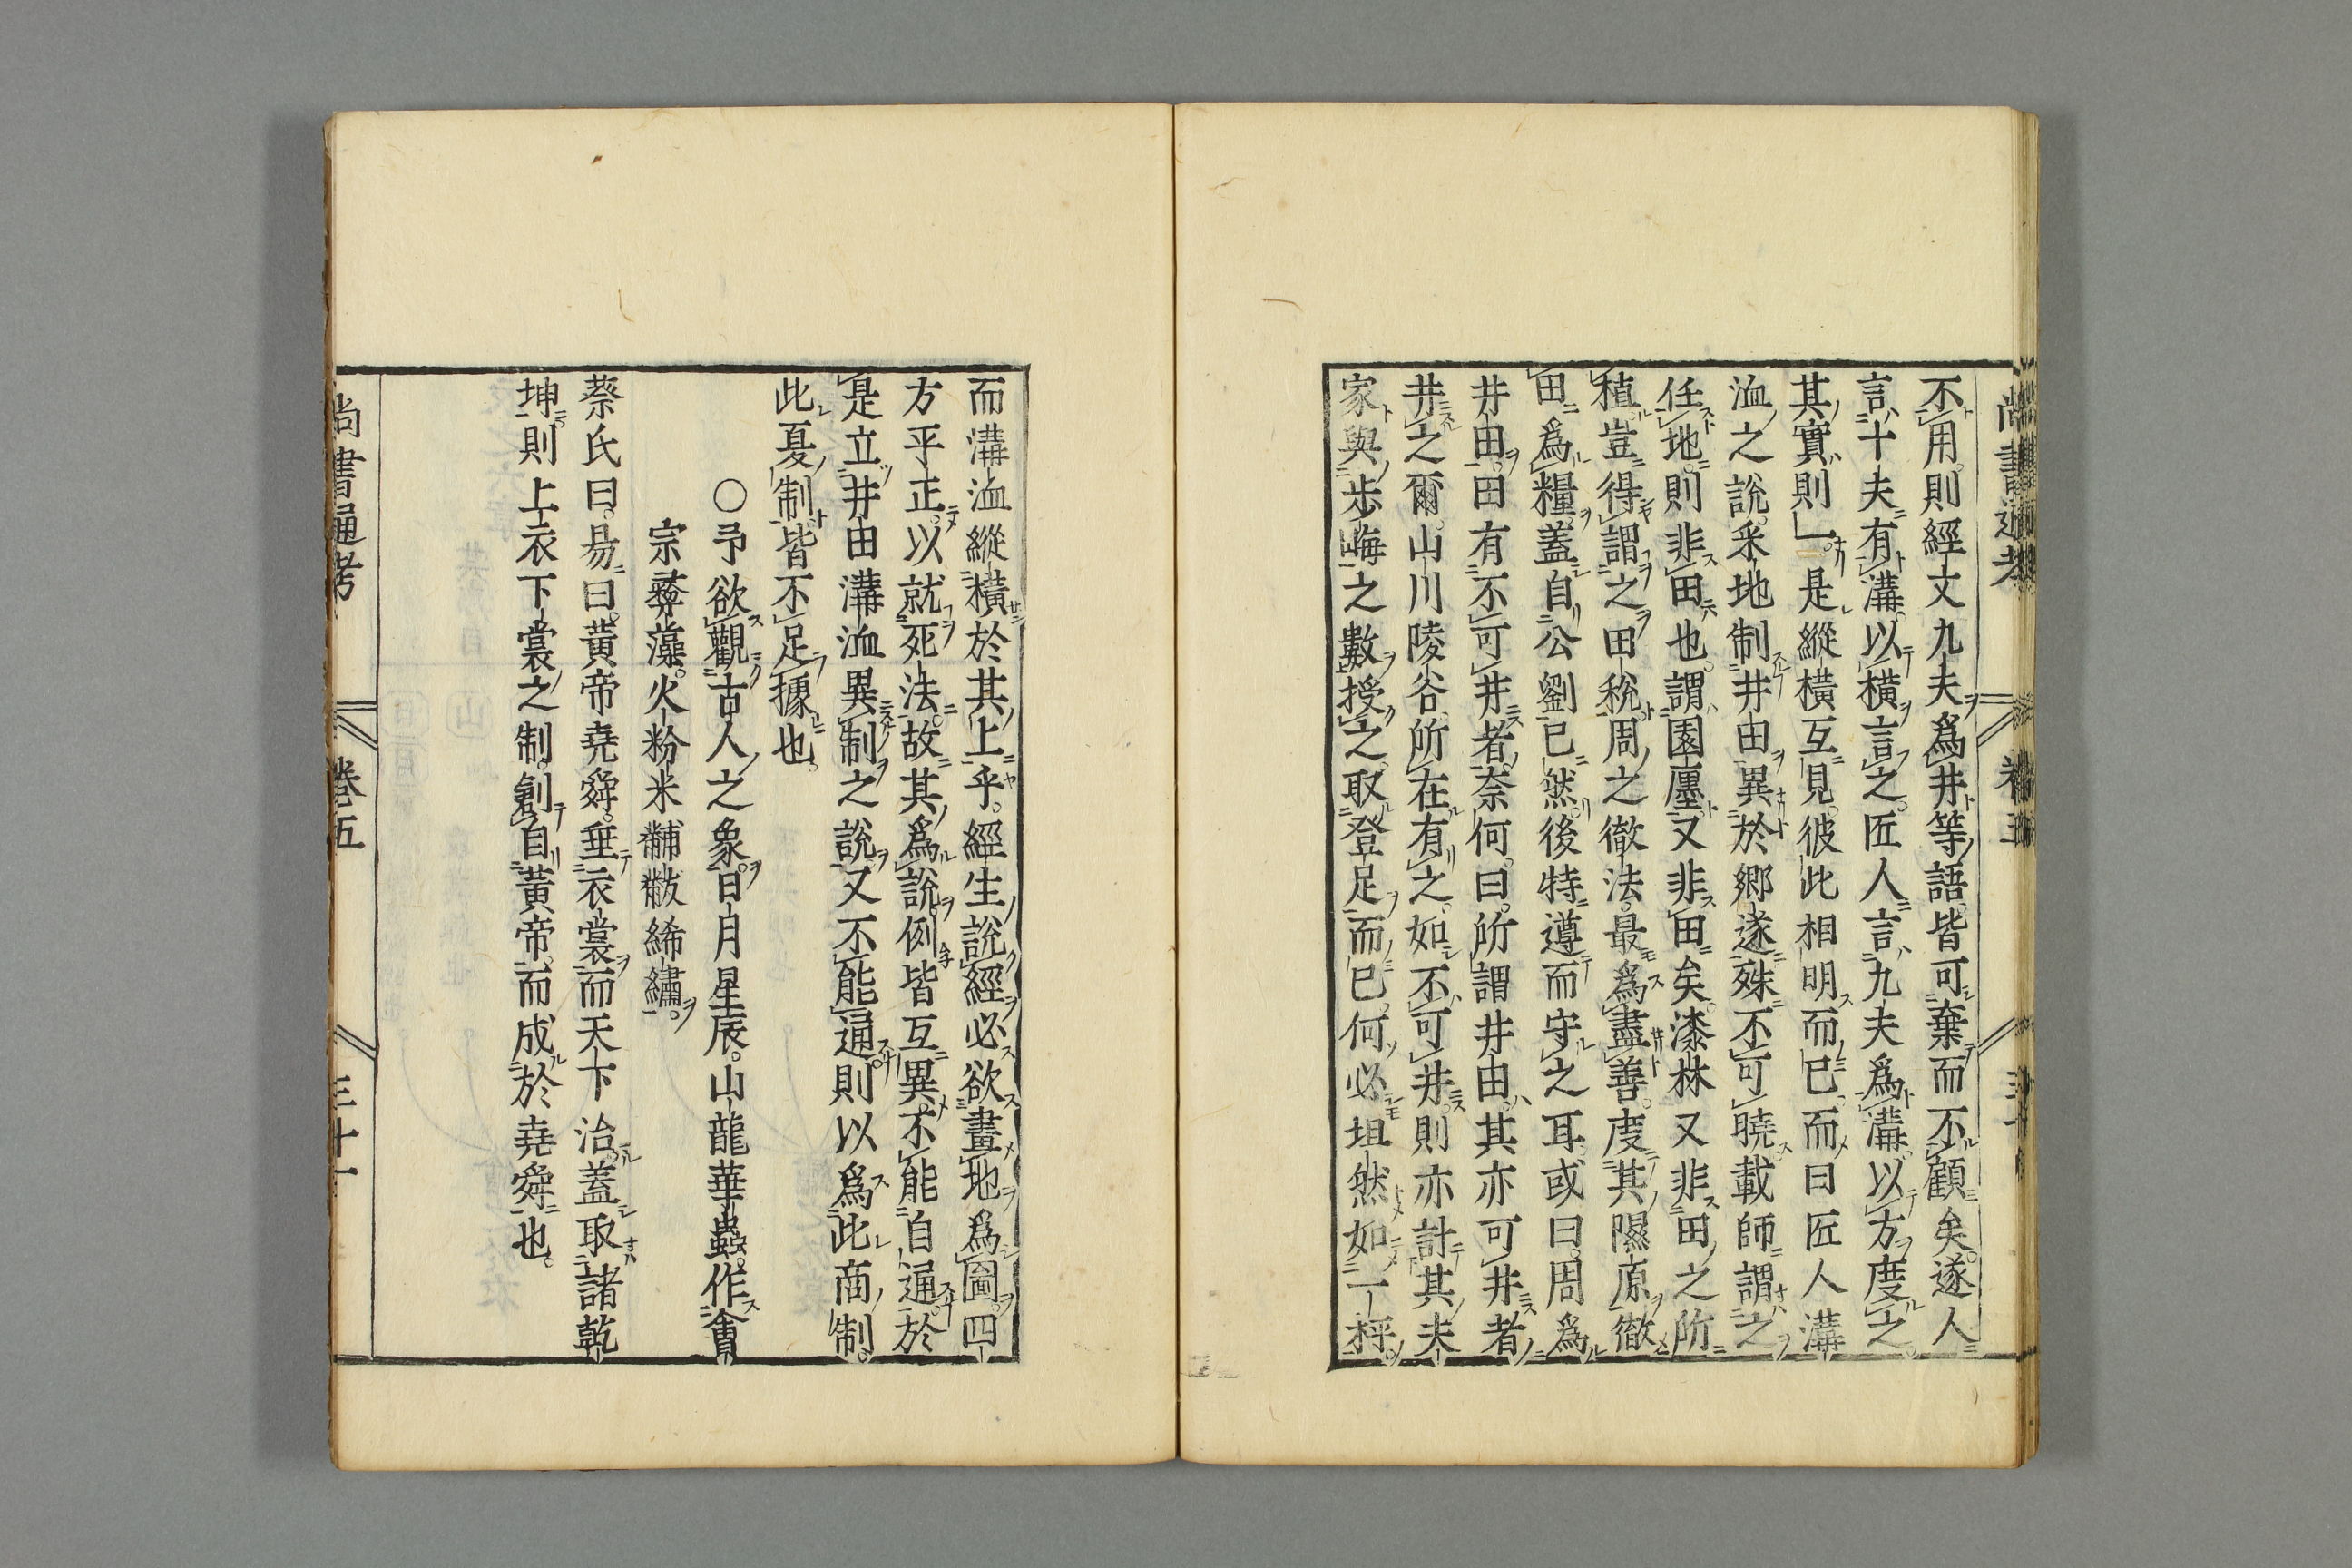 尚書通考
卷五
不用。則經文九夫爲井等語。皆可棄而不顧矣。遂人
言。十夫有溝。以橫言之。匠人言。九夫爲溝。以方度之。
其實則一。是縱橫互見。彼此相明而已。而曰匠人溝
洫之說。采地制井田異於鄉遂。殊不可曉。載師謂之
任地。則非田也。謂園廛又非田矣。漆林又非田之所
植。豈得謂之田稅。周之徹法。最爲盡善。度其隰原。徹
田爲糧。蓋自公劉已然。後特遵而守之耳。或曰。周爲
井田。田有不可井者。奈何。曰。所謂井田。其亦可井者
井之爾。山川陵谷。所在有之。如不可井。則亦計其夫
家與步畮之數。授之取登足而已。何必坦然如一枰。
而溝洫縱橫於其上乎。經生說經。必欲畫地爲圖。四
方平正。以就死法。故其爲說。例皆互異。不能自通。於
是立井田溝洫異制之說。又不能通。則以爲此商制。
此夏制。皆不足據也。
〇予欲觀古人之象。日月星辰。山龍華蟲。作會
宗彝藻。火粉米黼黻絺繡。
蔡氏曰。易曰。黃帝堯舜。垂衣裳。而天下治。蓋取諸乾
坤。則上衣下裳之制。創自黃帝。而成於堯舜也。
尚書通考
卷五
三十一